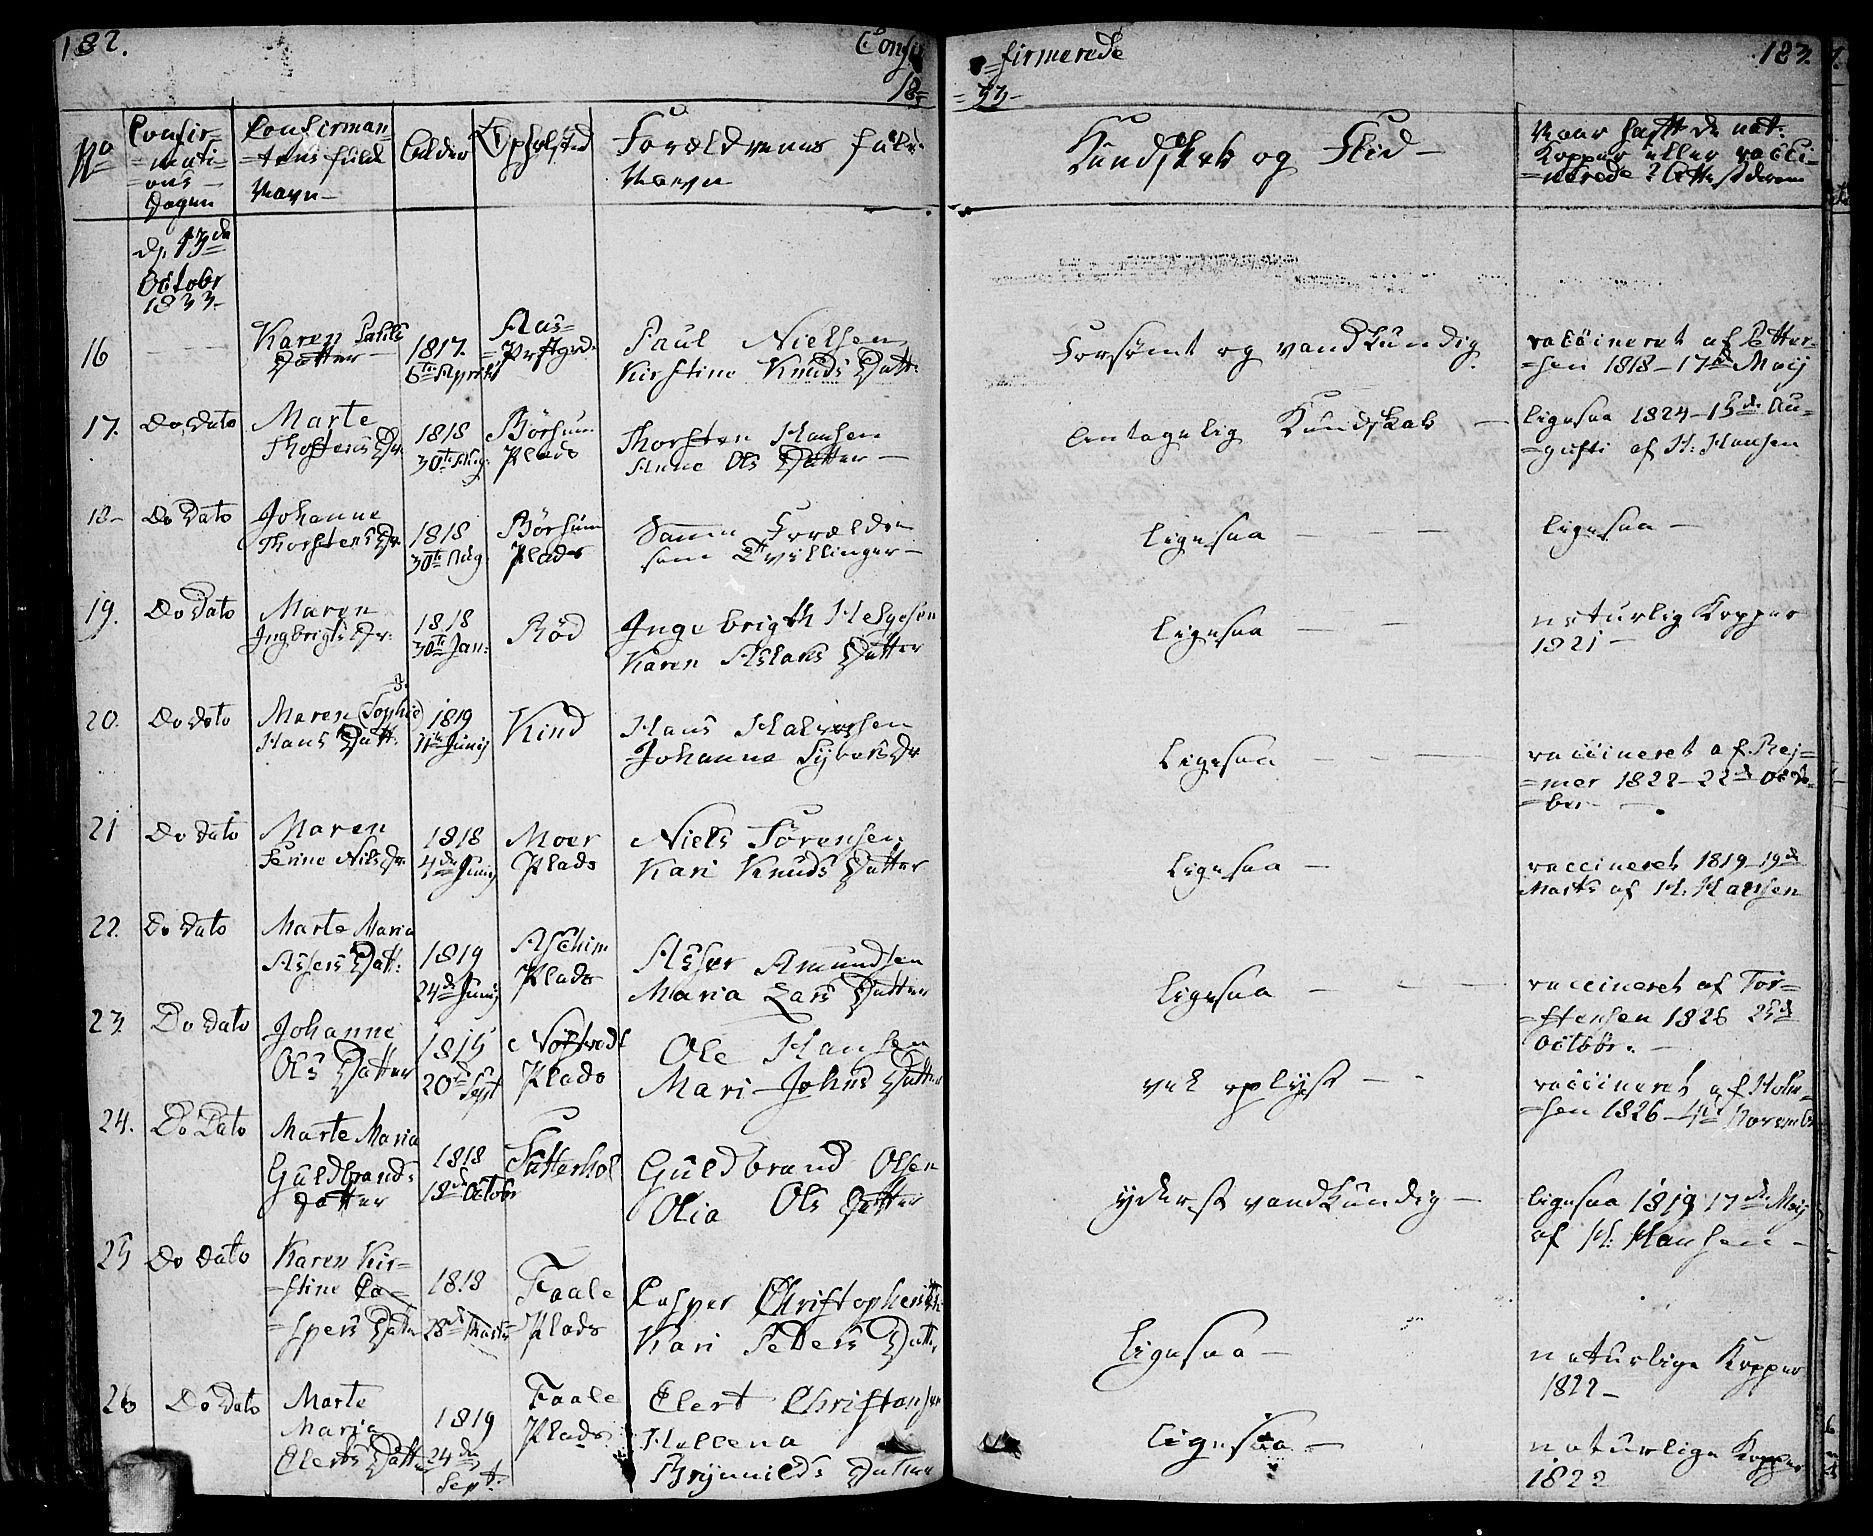 182.
Con-
=firmerede
183.
18=
=33-
No
Confir=
=mati=
=ons-
Dagen
Confirman=
=tens fulde
Navn-
Alder
Opholsted
Forældrenes fulde
Navn
Kundskab og Flid-
Naar haft de nat:
Kopper eller vacci-
=nerede? Attest derom
d. 13de
October
1833-
16
Karen Pauls
Datter
1817.
6te April
Aas=
=Prstgrd.
Paul Nielsen
Kirstine Knuds Datt.
Forsømt og vandkundig
vaccineret af Petter=
=sen 1818-17de Maij
17.
Do Dato
Marte
Thostens Dr.
1818
30te Aug:
Börsum
Plads
Thorsten Hansen
Anne Ols Datter-
Antagelig Kundskab -
ligesaa 1824-15de Au=
=gusti af H: Hansen
18-
Do Dato
Johanne
Thorstens Dr
1818
30te Aug
Börsum
Plads
Samme Forældre
som Tvillinger-
Ligesaa
ligesaa-
19.
Do Dato
Maren
Ingbrigts Dr:
1818
30te Jan:
Röd
Ingebrigth Helgesen
Karen Aslaks Datter
Ligesaa
naturlig Kopper
1821-
20.
Do Dato
Maren Sophie
Hans Datt.
1819
11te Junij
Kind
Hans Halvorsen
Johanne Syvers Dr
Ligesaa
vaccineret af Rej=
=mer 1822-22de Octo=
=ber-
21
Do Dato
Maren
Serine Nils Dr.
1818
4de Junij
Moer
Plads
Niels Sörensen
Kari Knuds Datter
Ligesaa -
vaccineret 1819-19de
Marts af H. Hansen
22.
Do Dato
Marte Maria
Assers Datt:
1819
24de Junij
Aschim
Plads
Asser Amundsen
Maria Lars Datter
Ligesaa
vaccineret af Tor=
=stensen 1826 25de
Octobr. -
23.
Do Dato
Johanne
Ols Datter
1815
20de Sept
Plads
Ole Hansen
Mari-Johns Datter
vel oplyst -
vaccineret af Holm=
=sen 1826-4de Novemb
24.
Do Dato
Marte Maria
Guldbrands
Datter
1818
18de Octobr
Sætterhol
Guldbrand Olsen
Olia Ols Datter
yderst vandkundig -
ligesaa 1819 17de Maij
af H: Hansen-
25
Do Dato
Karen Kir=
=stine Ca=
=spers Datr
1818
28de Marts
Faale
Plads
Casper Christophersen
Kari Peders Datr
Ligesaa-
naturlige Kopper
1822-
26
Do Dato
Marte
Maria
Elerts Datter
1819
24de
Sept.
Faale
Plads
Elert Christansen
Hellena
Brynnilds Datter
Ligesaa-
naturlige Kopper
1822